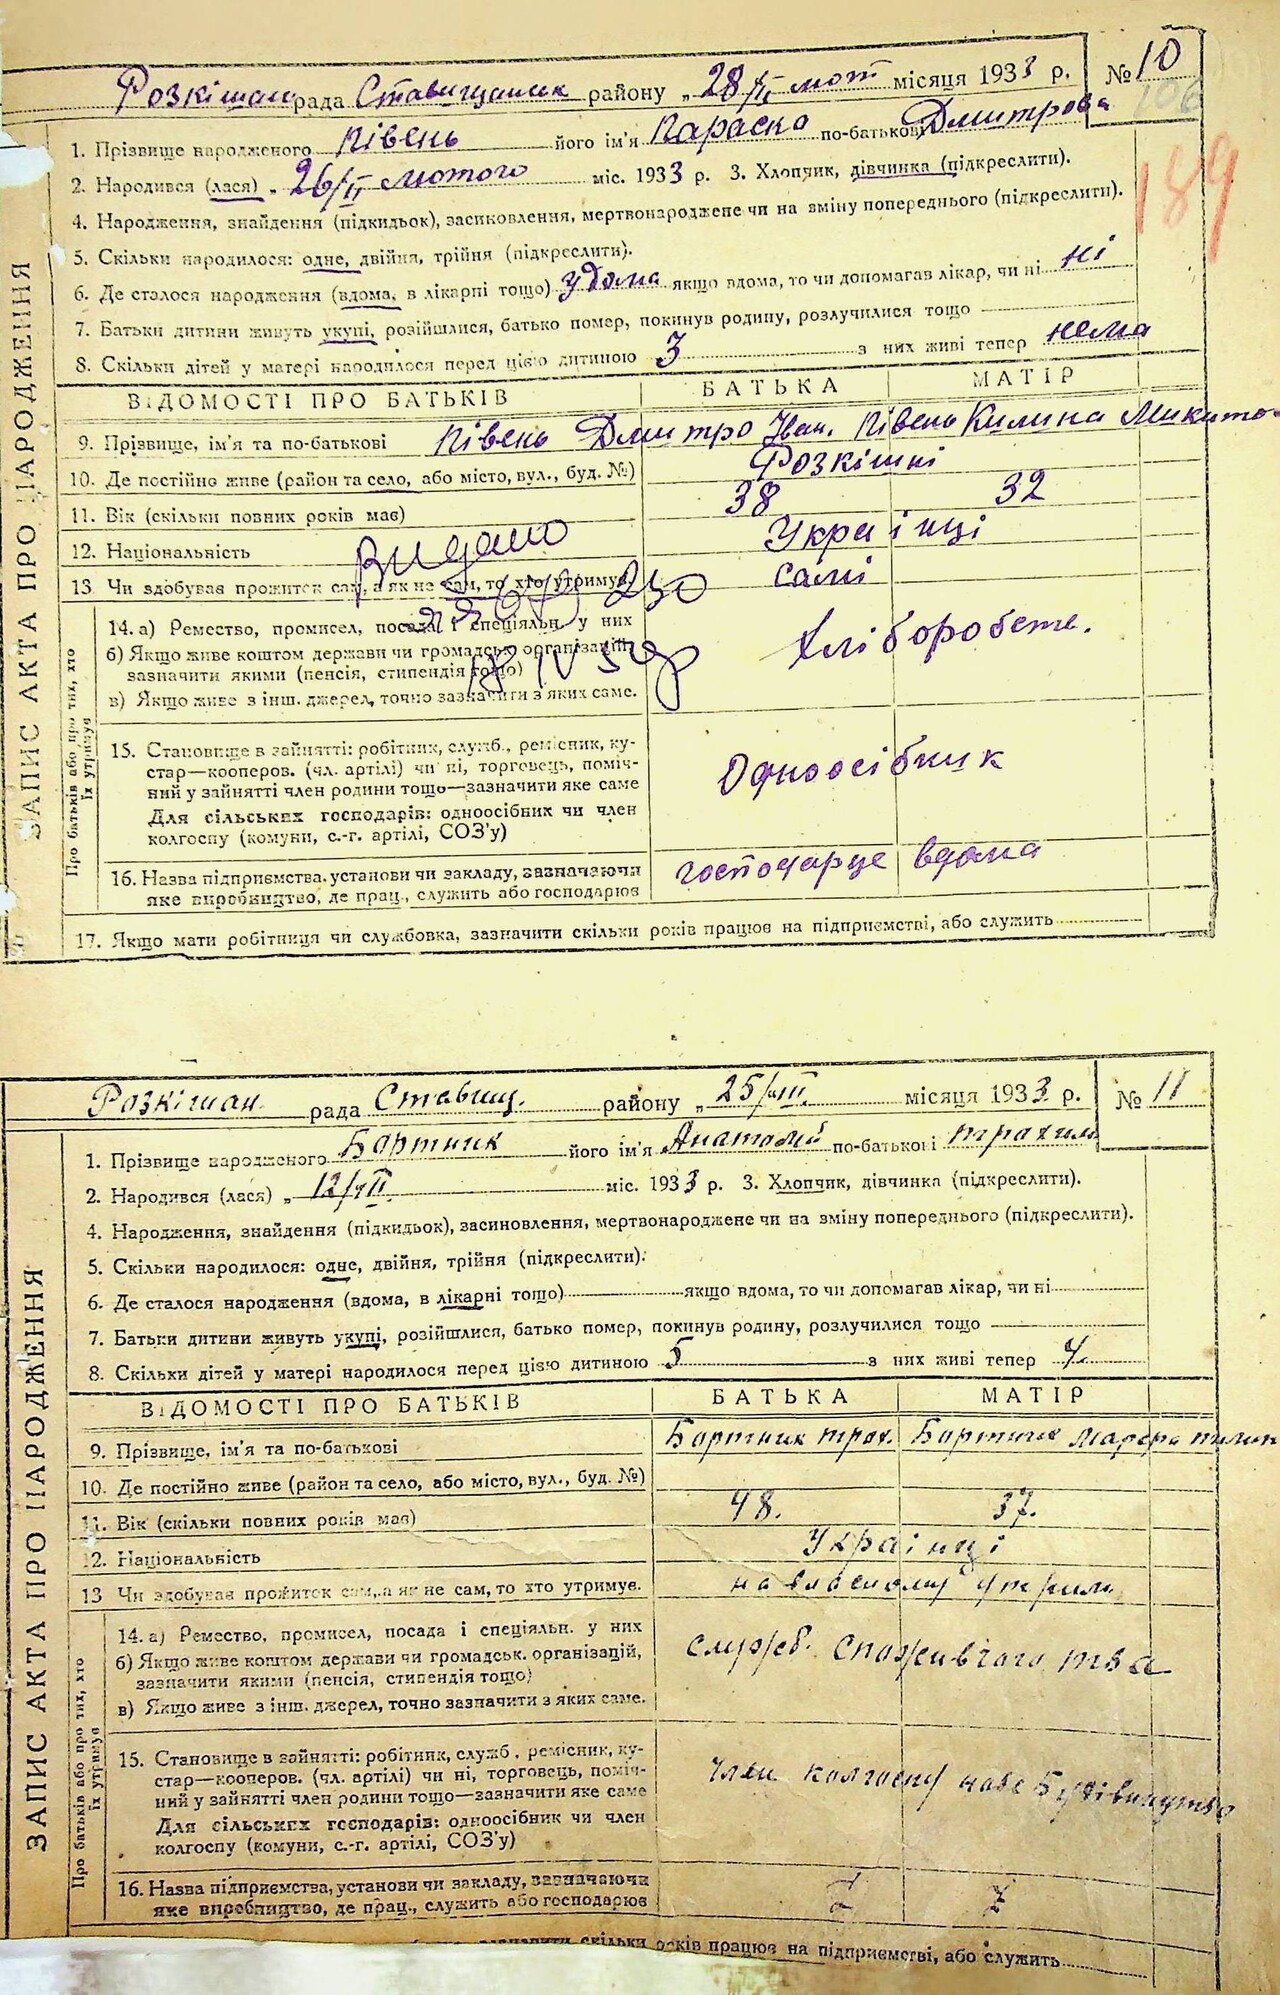 Розкішан рада Ставищанск району „28/II лют місяця 1933 р. № 10
106
189
ЗАПИС АКТА ПРО НАРОДЖЕННЯ
1. Прізвище народженого Півень його ім'я Параска по-батькові Дмитрова
2. Народився (лася) „ 26/II лютого міс. 1933 р. 3. Хлопчик, дівчинка (підкреслити).
4. Народження, знайдення (підкидьок), засиновлення, мертвонароджене чи на зміну попереднього (підкреслити).
5. Скільки народилося: одне, двійня, трійня (підкреслити).
6. Де сталося народження (вдома, в лікарні тощо) удома якщо вдома, то чи допомагав лікар, чи ні ні
7. Батьки дитини живуть укупі, розійшлися, батько помер, покинув родину, розлучилися тощо
8. Скільки дітей у матері народилося перед цією дитиною 3 з них живі тепер нема
ВІДОМОСТІ ПРО БАТЬКІВ БАТЬКА МАТІР
9. Прізвище, ім'я та по-батькові Півень Дмитро Іван. Півень Килина Микито-
10. Де постійно живе (район та село, або місто, вул., буд. №) Розкішні
11. Вік (скільки повних років має) 38 32
12. Національність Українці
Видано
13. Чи здобував прожиток сам, а як не сам, то хто утримує самі
250
Про батьків або про тих, хто їх утримує
14. а) Ремество, промисел, посада і спеціяльн. у них
б) Якщо живе коштом держави чи громадськ. організацій, хлібороб
зазначити якими (пенсія, стипендія тощо)
18 IV
в) Якщо живе з інш. джерел, точно зазначити з яких саме.
15. Становище в зайнятті: робітник, служб., ремісник, ку-
стар—кооперов. (чл. артілі) чи ні, торговець, поміч- Одноосібник
ний у зайнятті член родини тощо—зазначити яке саме
Для сільських господарів: одноосібник чи член
колгоспу (комуни, с.-г. артілі, СОЗ'у)
16. Назва підприємства, установи чи закладу, зазначаючи господарце вдома
яке виробництво, де прац., служить або господарює
17. Якщо мати робітниця чи службовка, зазначити скільки років працює на підприємстві, або служить
Розкішан. рада Ставищ. району „ 25/III місяця 1933 р. № 11
ЗАПИС АКТА ПРО НАРОДЖЕННЯ
1. Прізвище народженого Бортник його ім'я Анатолій по-батькові Трохим
2. Народився (лася) „ 12/III міс. 1933 р. 3. Хлопчик, дівчинка (підкреслити).
4. Народження, знайдення (підкидьок), засиновлення, мертвонароджене чи на зміну попереднього (підкреслити).
5. Скільки народилося: одне, двійня, трійня (підкреслити).
6. Де сталося народження (вдома, в лікарні тощо) якщо вдома, то чи допомагав лікар, чи ні
7. Батьки дитини живуть укупі, розійшлися, батько помер, покинув родину, розлучилися тощо
8. Скільки дітей у матері народилося перед цією дитиною 5 з них живі тепер 4.
ВІДОМОСТІ ПРО БАТЬКІВ БАТЬКА МАТІР
9. Прізвище, ім'я та по-батькові Бортник Трох. Бортник
10. Де постійно живе (район та село, або місто, вул., буд. №)
11. Вік (скільки повних років має) 48. 37.
12. Національність Українці
13 Чи здобував прожиток сам, а як не сам, то хто утримує. на власному утрим.
Про батьків або про тих, хто їх утримує
14. а) Ремество, промисел, посада і спеціяльн. у них
б) Якщо живе коштом держави чи громадськ. організацій, служб. споживчого т-ва
зазначити якими (пенсія, стипендія тощо)
в) Якщо живе з інш. джерел, точно зазначити з яких саме.
15. Становище в зайнятті: робітник, служб., ремісник, ку-
стар—кооперов. (чл. артілі) чи ні, торговець, поміч- Член колгоспу нове Будівництво
ний у зайнятті член родини тощо—зазначити яке саме
Для сільських господарів: одноосібник чи член
колгоспу (комуни, с.-г. артілі, СОЗ'у)
16. Назва підприємства, установи чи закладу, зазначаючи
яке виробництво, де прац., служить або господарює
зазначити скільки років працює на підприємстві, або служить